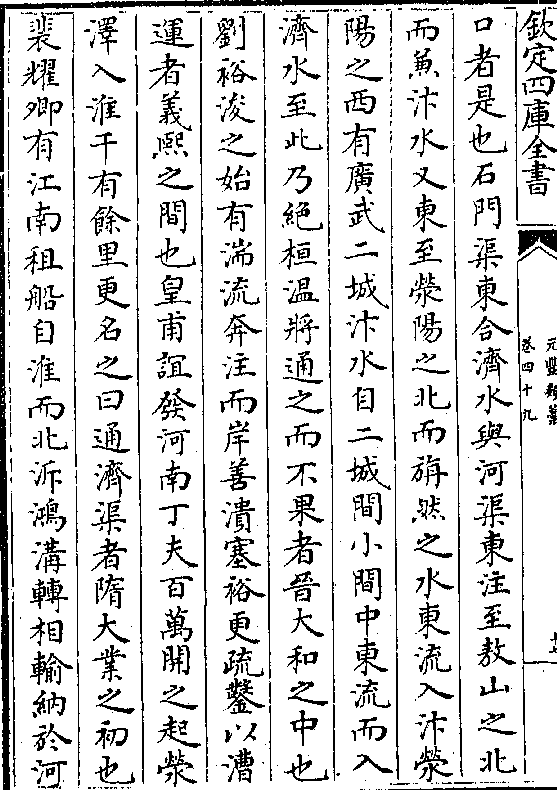 欽定四庫全書
元豐類藁
卷四十九
口者是也石門渠東合濟水與河渠東注至敖山之北
而兼汴水又東至滎陽之北而旃然之水東流入汴滎
陽之西有廣武二城汴水自二城間小間中東流而入
濟水至此乃絕桓温將通之而不果者晉大和之中也
劉裕浚之始有湍流奔注而岸善潰塞裕更疏鑿以漕
運者義熙之間也皇甫誼發河南丁夫百萬開之起滎
澤入淮千有餘里更名之曰通濟渠者隋大業之初也
裴耀卿有江南租船自淮而北泝鴻溝轉相輸納於河